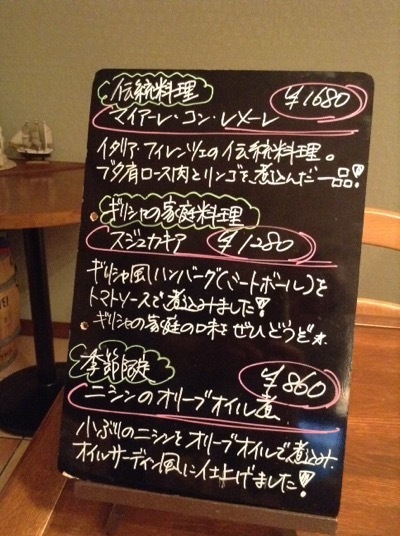 伝統料理
¥1680
マイアーレ・コン・レメーレ
イタリア・フィレンツェの伝統料理。
ブタ肩ロース肉とリンゴを煮込んだ一品!
ギリシャの家庭料理
スジュカキア ¥1280
ギリシャ風ハンバーグ(ミートボール)を
トマトソースで煮込みました!
ギリシャの家庭の味を ぜひどうぞ☆
季節限定
¥860
ニシンのオリーブオイル煮
小ぶりのニシンをオリーブオイルで煮込み
オイルサーディン風に仕上げました!